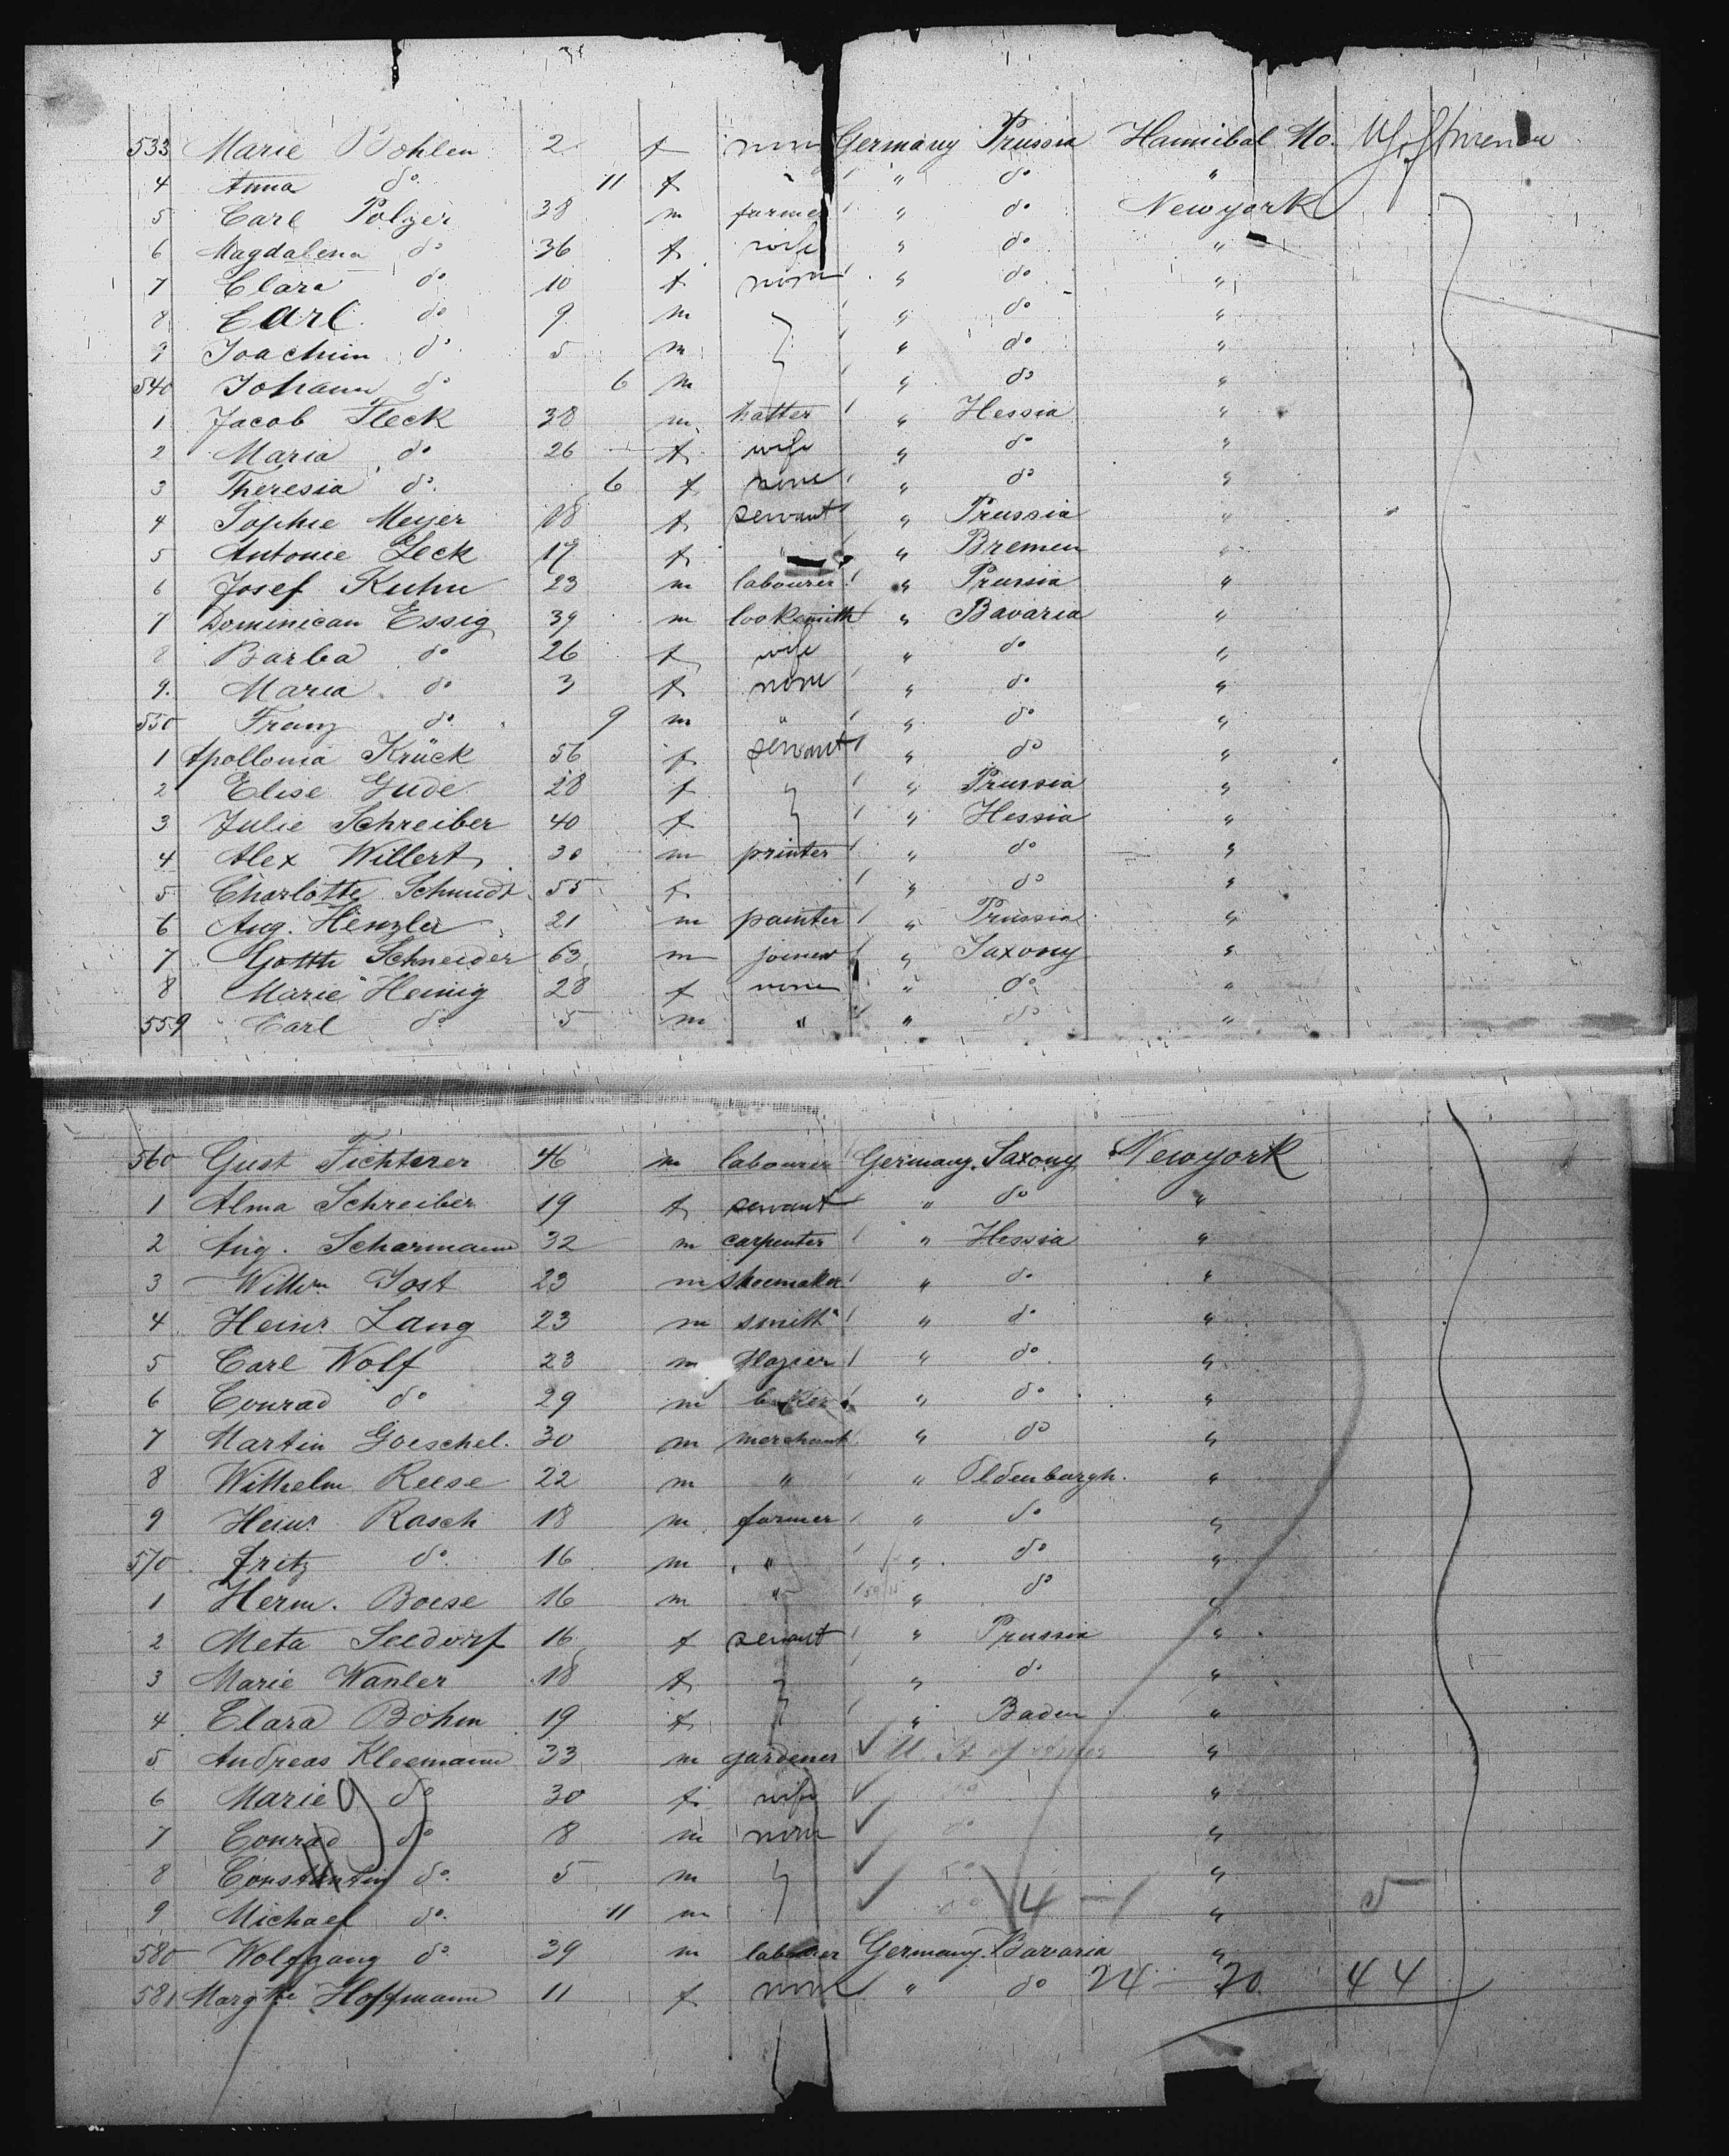 533 Marie Bohlen 2 f none Germany Prussia Hannibal Mo.
4 Anna do 11 f " " do "
5 Carl Polzer 38 m farmer " do Newyork
6 Magdalena do 36 f wife " do "
7 Clara do 10 f none " do "
8 Carl do 9 m " do "
9 Joachim do 5 m " do "
540 Johann do 6 m " do "
1 Jacob Fleck 38 m hatter " Hessia "
2 Maria do 26 f wife " do "
3 Theresia do 6 f none " do "
4 Sophie Meyer 18 f servant " Prussia "
5 Antonie Leck 19 f " " Bremen "
6 Josef Kuhn 23 m labourer " Prussia "
7 Dominican Essig 39 m looksmith " Bavaria "
8 Barba do 26 f wife " do "
9. Maria do 3 f none " do "
550 Franz do 9 m " " do "
1 Apollonia Krück 56 f servant " do "
2 Elise Gude 28 f " " Prussia "
3 Julie Schreiber 40 f " Hessia "
4 Alex Willert 30 m printer " do "
5 Charlotte Schmidt 55 f " do "
6 Aug. Henzler 21 m painter " Prussia "
7 Gotth Schneider 63 m joiner " Saxony "
8 Marie Heinig 28 f none " do "
559 Carl do 5 m " " do "
560 Gust Fichterer 46 m labourer Germany Saxony Newyork
1 Alma Schreiber 19 f servant " do "
2 Aug. Scharmann 32 m carpenter " Hessia "
3 Willm Jost 23 m shoemaker " do "
4 Heinr Lang 23 m smith " do "
5 Carl Wolf 23 m glazier " do "
6 Conrad do 29 m baker " do "
7 Martin Goeschel. 30 m merchant " do "
8 Wilhelm Reese 22 m " " Oldenburgh. "
9 Heinr Rasch 18 m farmer " do "
570 Fritz do 16 m " " do "
1 Herm. Boese 16 m " " do "
2 Meta Seedorf 16 f servant " Prussia "
3 Marie Wanler 18 f " " do "
4 Clara Böhm 19 f " Baden "
5 Andreas Kleemann 33 m gardener U. St of "
6 Marie do 30 f wife do "
7 Conrad do 8 m none do "
8 Constantin do 5 m do "
9 Michael do 11 m do 4 — 1 " 5
580 Wolfgang do 39 m labourer Germany Bavaria "
581 Margthe Hoffmann 11 f none " do 24 — 20 44